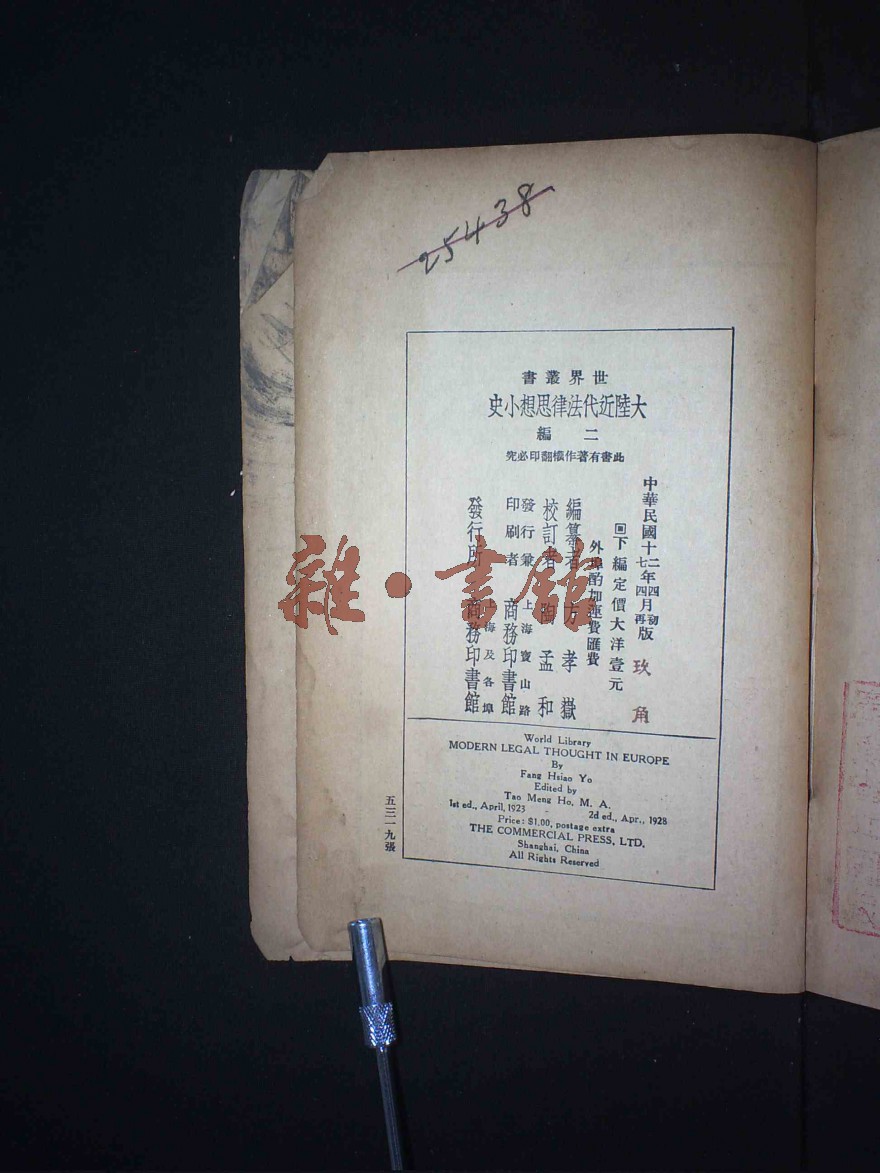 25438
世界叢書
大陸近代法律思想小史
二編
此書有著作權翻印必究
中華民國十二年四月初版
七年四月再版
下編定價大洋壹元
玖角
外埠酌加運費匯費
編纂者 方孝嶽
校訂者 陶孟和
發行兼印刷者 上海寶山路 商務印書館
發行所 上海及各埠 商務印書館
World Library
MODERN LEGAL THOUGHT IN EUROPE
By
Fang Hsiao Yo
Edited by
Tao Meng Ho, M. A.
1st ed., April, 1923 2d ed., Apr., 1928
Price: $1.00, postage extra
THE COMMERCIAL PRESS, LTD.
Shanghai, China
All Rights Reserved
五三一九張
雜·書館